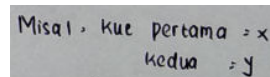 Misal. kue pertama = x
kedua = y